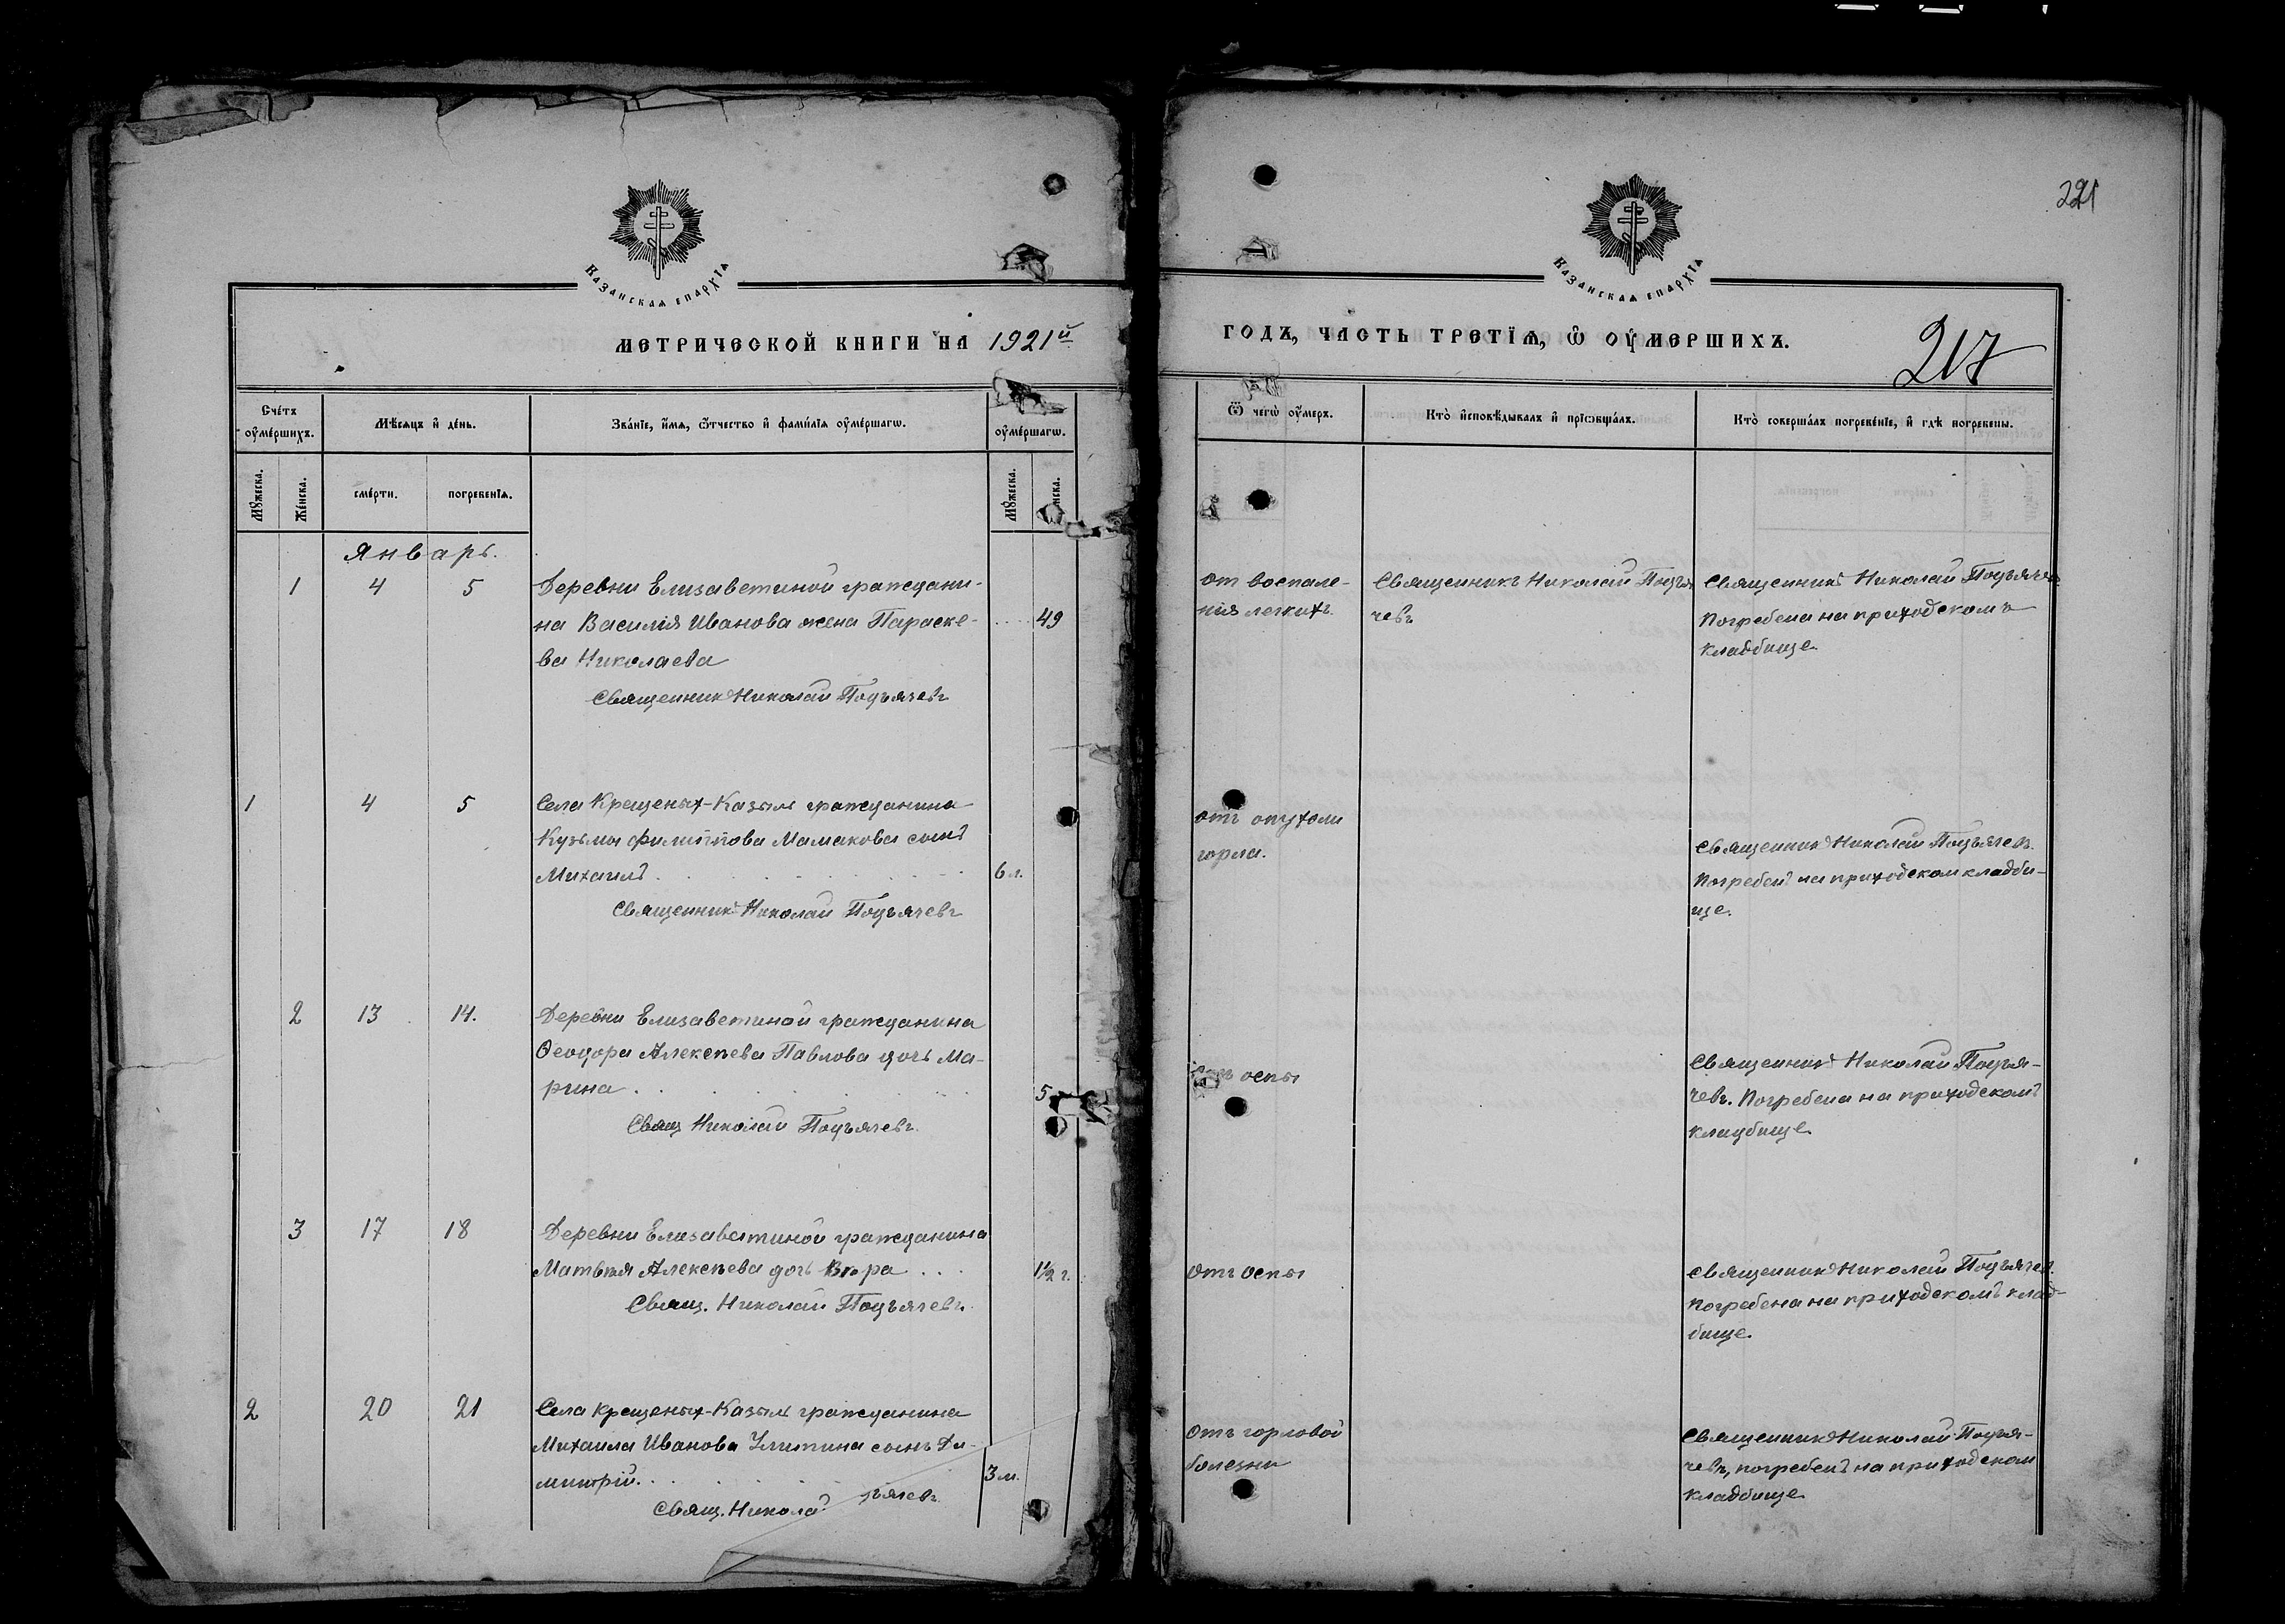 221
КАЗАНСКАѦ ЕПАРХІѦ
КАЗАНСКАѦ ЕПАРХІѦ
МЕТРИЧЕСКОЙ КНИГИ НА 1921й
ГОДЪ, ЧАСТЬ ТРЕТІѦ, Ѿ ОУМЕРШИХЪ.
217
Счетъ оумершихъ.
Мѣсѧцъ и день.
Званіе, имѧ, ѻтчество и фамиліѧ оумершагѡ.
оумершагѡ.
Ѿ чегѡ оумеръ.
Кто исповѣдывалъ и пріѻбщалъ.
Кто совершалъ погребеніе, и гдѣ погребены.
Мꙋжеска.
Женска.
смерти.
погребеніѧ.
Мꙋжеска.
нска.
Январь.
1 4 5 Деревни Елизаветиной граждани-
на Василія Иванова жена Параске- 49
ва Николаева
Священникъ Николай Подъячевъ
от воспале-
нія легкихъ.
Священникъ Николай Подъя
чевъ
Священникъ Николай Подъячев
Погребена на приходскомъ
кладбище
1 4 5 Села Крещеных-Казыл гражданина
Кузьмы Филиппова Мамакова сынъ
Михаилъ 6 л.
Священникъ Николай Подъячевъ
отъ опухоли
горла.
Священникъ Николай Подъячевъ.
Погребенъ на приходском кладби-
ще.
2 13 14. Деревни Елизаветиной гражданина
Ѳеодора Алексѣева Павлова дочь Ма-
рина 5
Свящ Николай Подъячевъ.
оспы
Священникъ Николай Подъя-
чевъ. Погребена на приходскомъ
кладбище
3 17 18 Деревни Елизаветиной гражданина
Матвѣя Алексѣева дочь Вѣра 1½ г.
Свящ. Николай Подъячевъ.
отъ оспы
Священникъ Николай Подъячев.
Погребена на приходскомъ клад-
бище.
2 20 21 Села Крещеных-Казыл гражданина
Михаила Иванова сынъ Ди-
митрій. 3 м.
Свящ. Николай ъячевъ
Отъ горловой
болезни
Священникъ Николай Подъя-
чевъ, погребенъ на приходском
кладбище